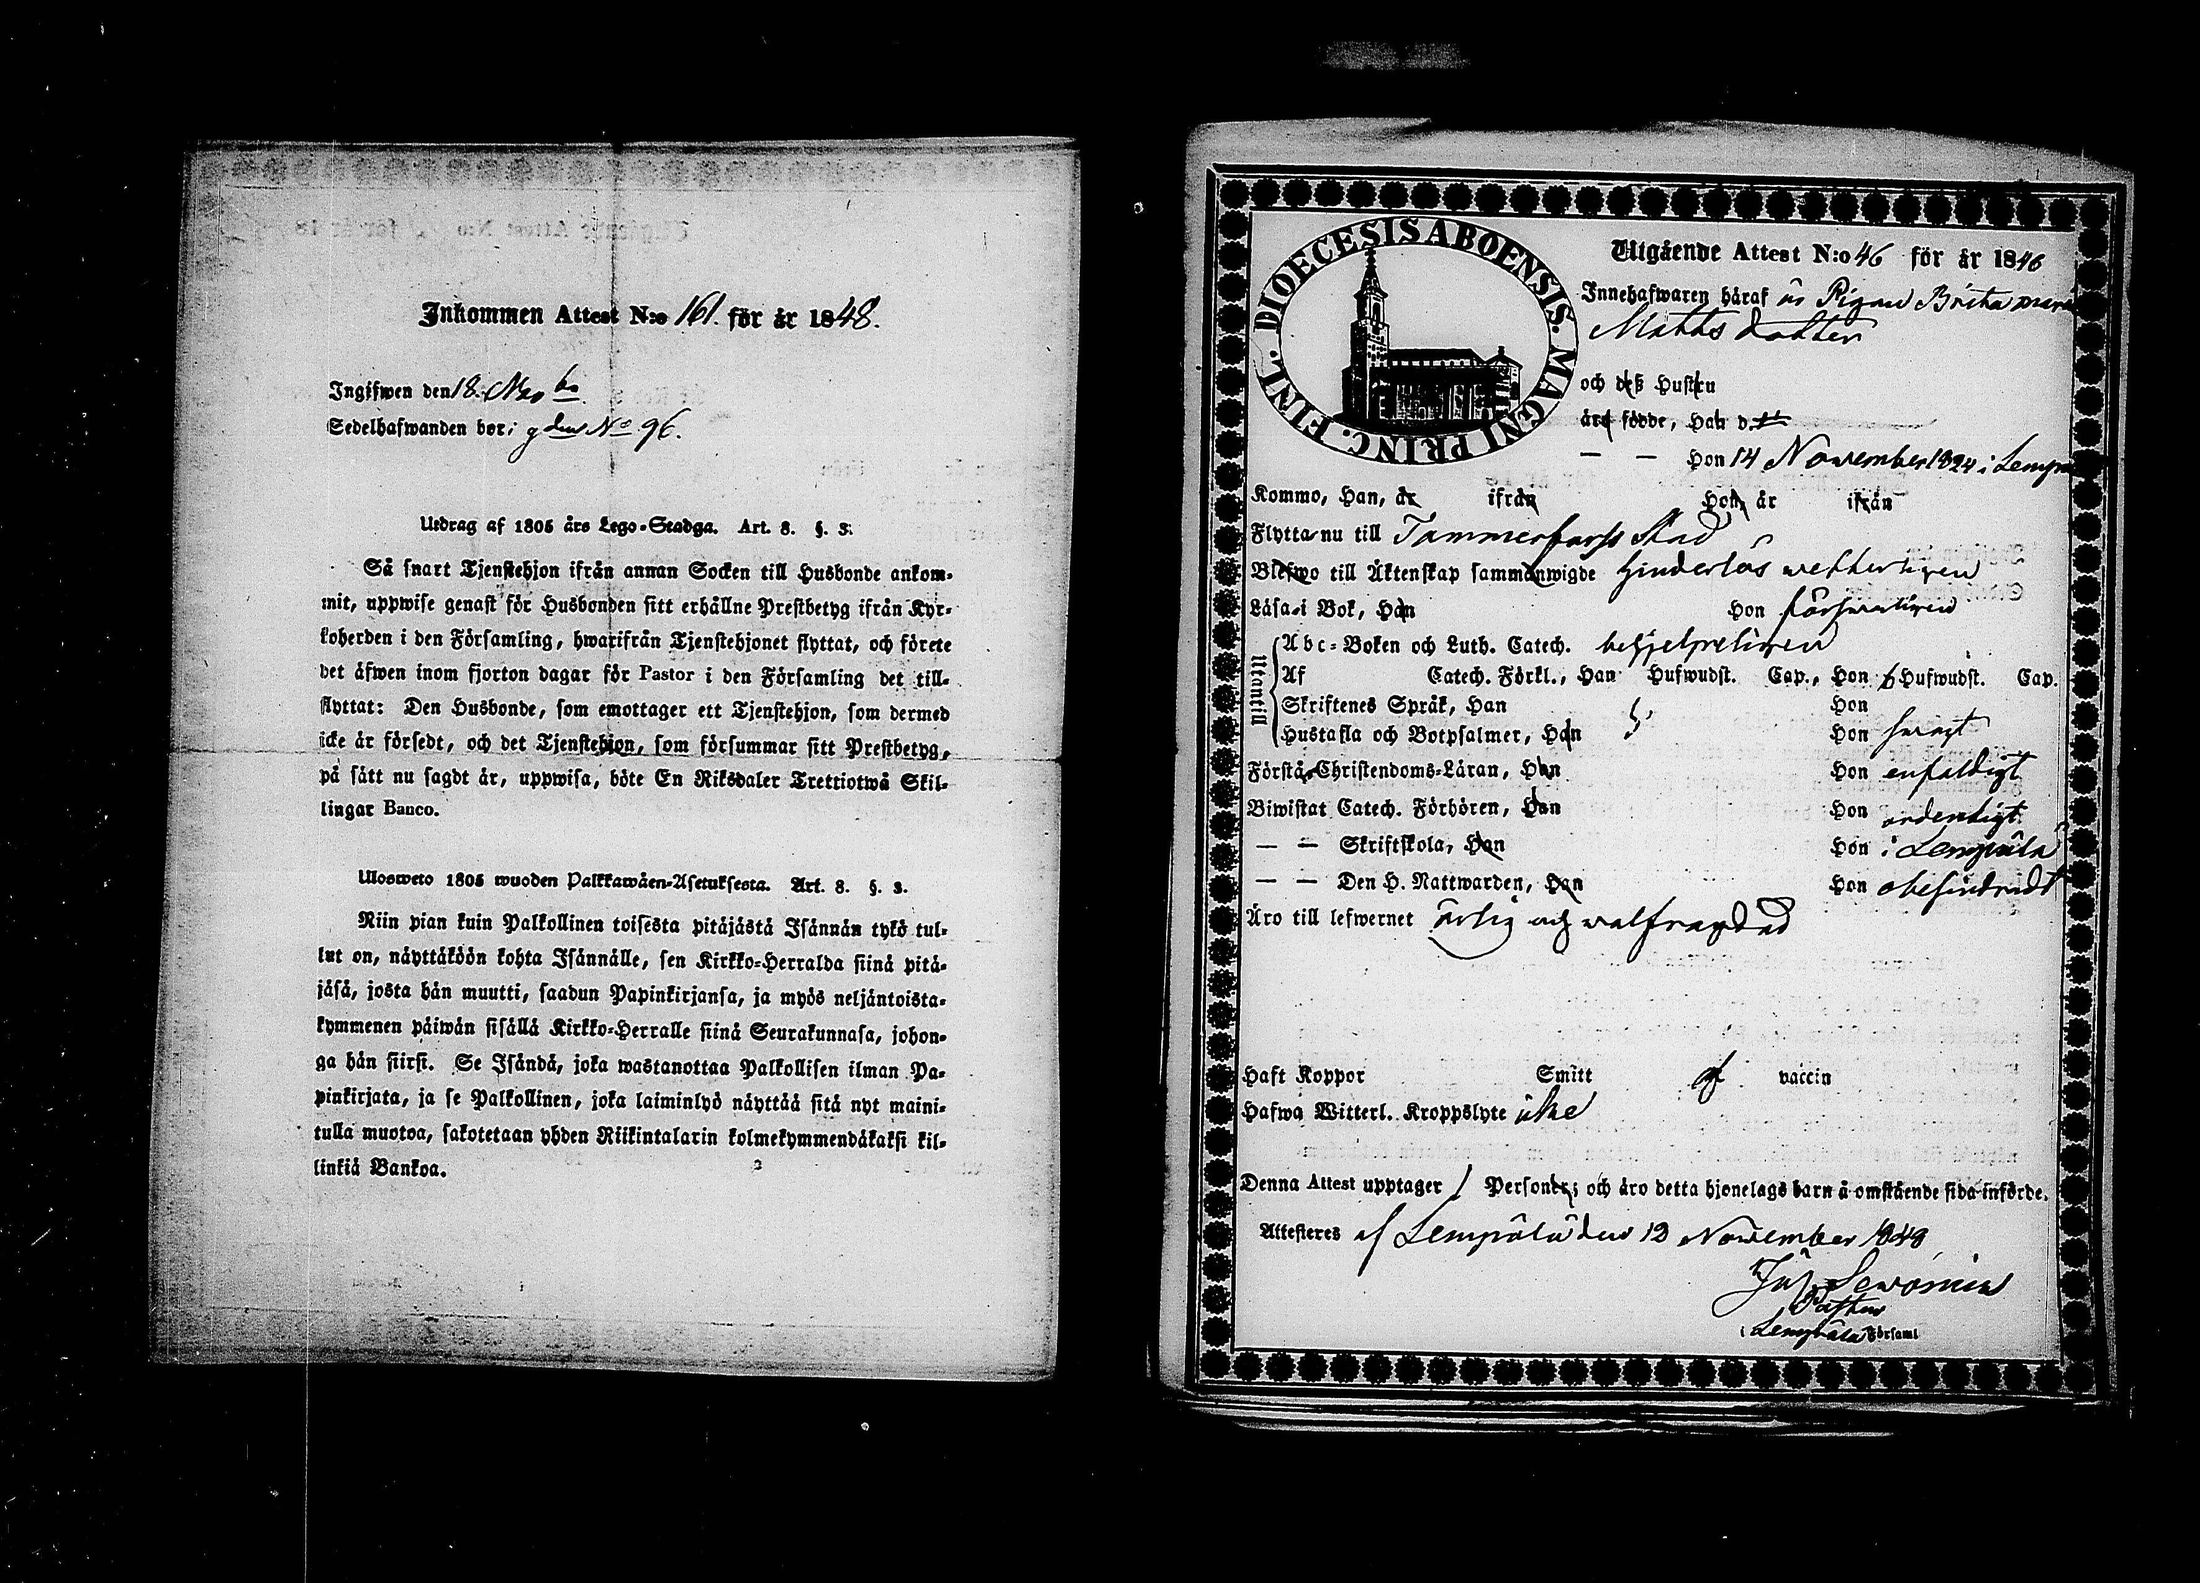 Inkommen Attest N:o 161. för år 1848.
Ingifwen den 18. Nov br
Sedelhafwanden bor i gden No 96.
Utdrag af 1805 års Lego-Stadga. Art. 8. §. 3.
Så snart Tjenstehjon ifrån annan Socken till Husbonde ankom-
mit, uppwise genast för Husbonden sitt erhållne Prestbetyg ifrån Kyr-
koherden i den Församling, hwarifrån Tjenstehjonet flyttat, och förete
det äfwen inom fjorton dagar för Pastor i den Församling det till-
flyttat: Den Husbonde, som emottager ett Tjenstehjon, som dermed
icke är försedt, och det Tjenstehjon, som försummar sitt Prestbetyg,
på sätt nu sagdt är, uppwisa, böte En Riksdaler Trettiotwå Skil-
lingar Banco.
Ulosweto 1805 wuoden Palkkawäen-Asetuksesta. Art. 8. §. 3.
Niin pian kuin Palkollinen toisesta pitäjästä Isännän tykö tul-
lut on, näyttäköön kohta Isännälle, sen Kirkko-Herralda siinä pitä-
jäsä, josta hän muutti, saadun Papinkirjansa, ja myös neljäntoista-
kymmenen päiwän sisällä Kirkko-Herralle siinä Seurakunnasa, johon-
ga hän siirsi. Se Isändä, joka wastanottaa Palkollisen ilman Pa-
pinkirjata, ja se Palkollinen, joka laiminlyö näyttää sitä nyt maini-
tulla muotoa, sakotetaan yhden Riikintalarin kolmekymmendäkaksi kil-
linkiä Bankoa.
DIOECESIS ABOENSIS. MAGNI PRINC. FINL.
Utgående Attest N:o 46 för år 1846
Innehafwaren häraf är Pigan Brita Maria
Matts dotter
och deß Hustru
äro födde, Han d.
— — Hon 14 November 1824 i Lempä
Kommo, Han, år ifrån Hon, år ifrån
Flytta nu till Tammerfors Stad
Blefwo till Äktenskap sammanwigde hinderlös wetterligen
Läsa i Bok, Han Hon försvarligen
Utantill
Abc-Boken och Luth. Catech. behjelpeligen
Af Catech. Förkl., Han Hufwudst. Cap., Hon 6 Hufwudst. Cap.
Skriftenes Språk, Han Hon
Hustafla och Botpsalmer, Han Hon swagt
Förstå Christendoms-Läran, Han Hon enfaldigt
Biwistat Catech. Förhören, Han Hon ordentligt
— — Skriftskola, Han Hon i Lempäla
— — Den H. Nattwarden, Han Hon obehindradt
Äro till lefwernet ärlig och wälfrägdad
Haft Koppor Smitt af vaccin
Hafwa Witterl. Kroppslyte icke
Denna Attest upptager 1 Personer; och äro detta hjonelags barn å omstående sida införde.
Attesteres af Lempälä den 12 November 1848
Pastor
i Lempälä Församl